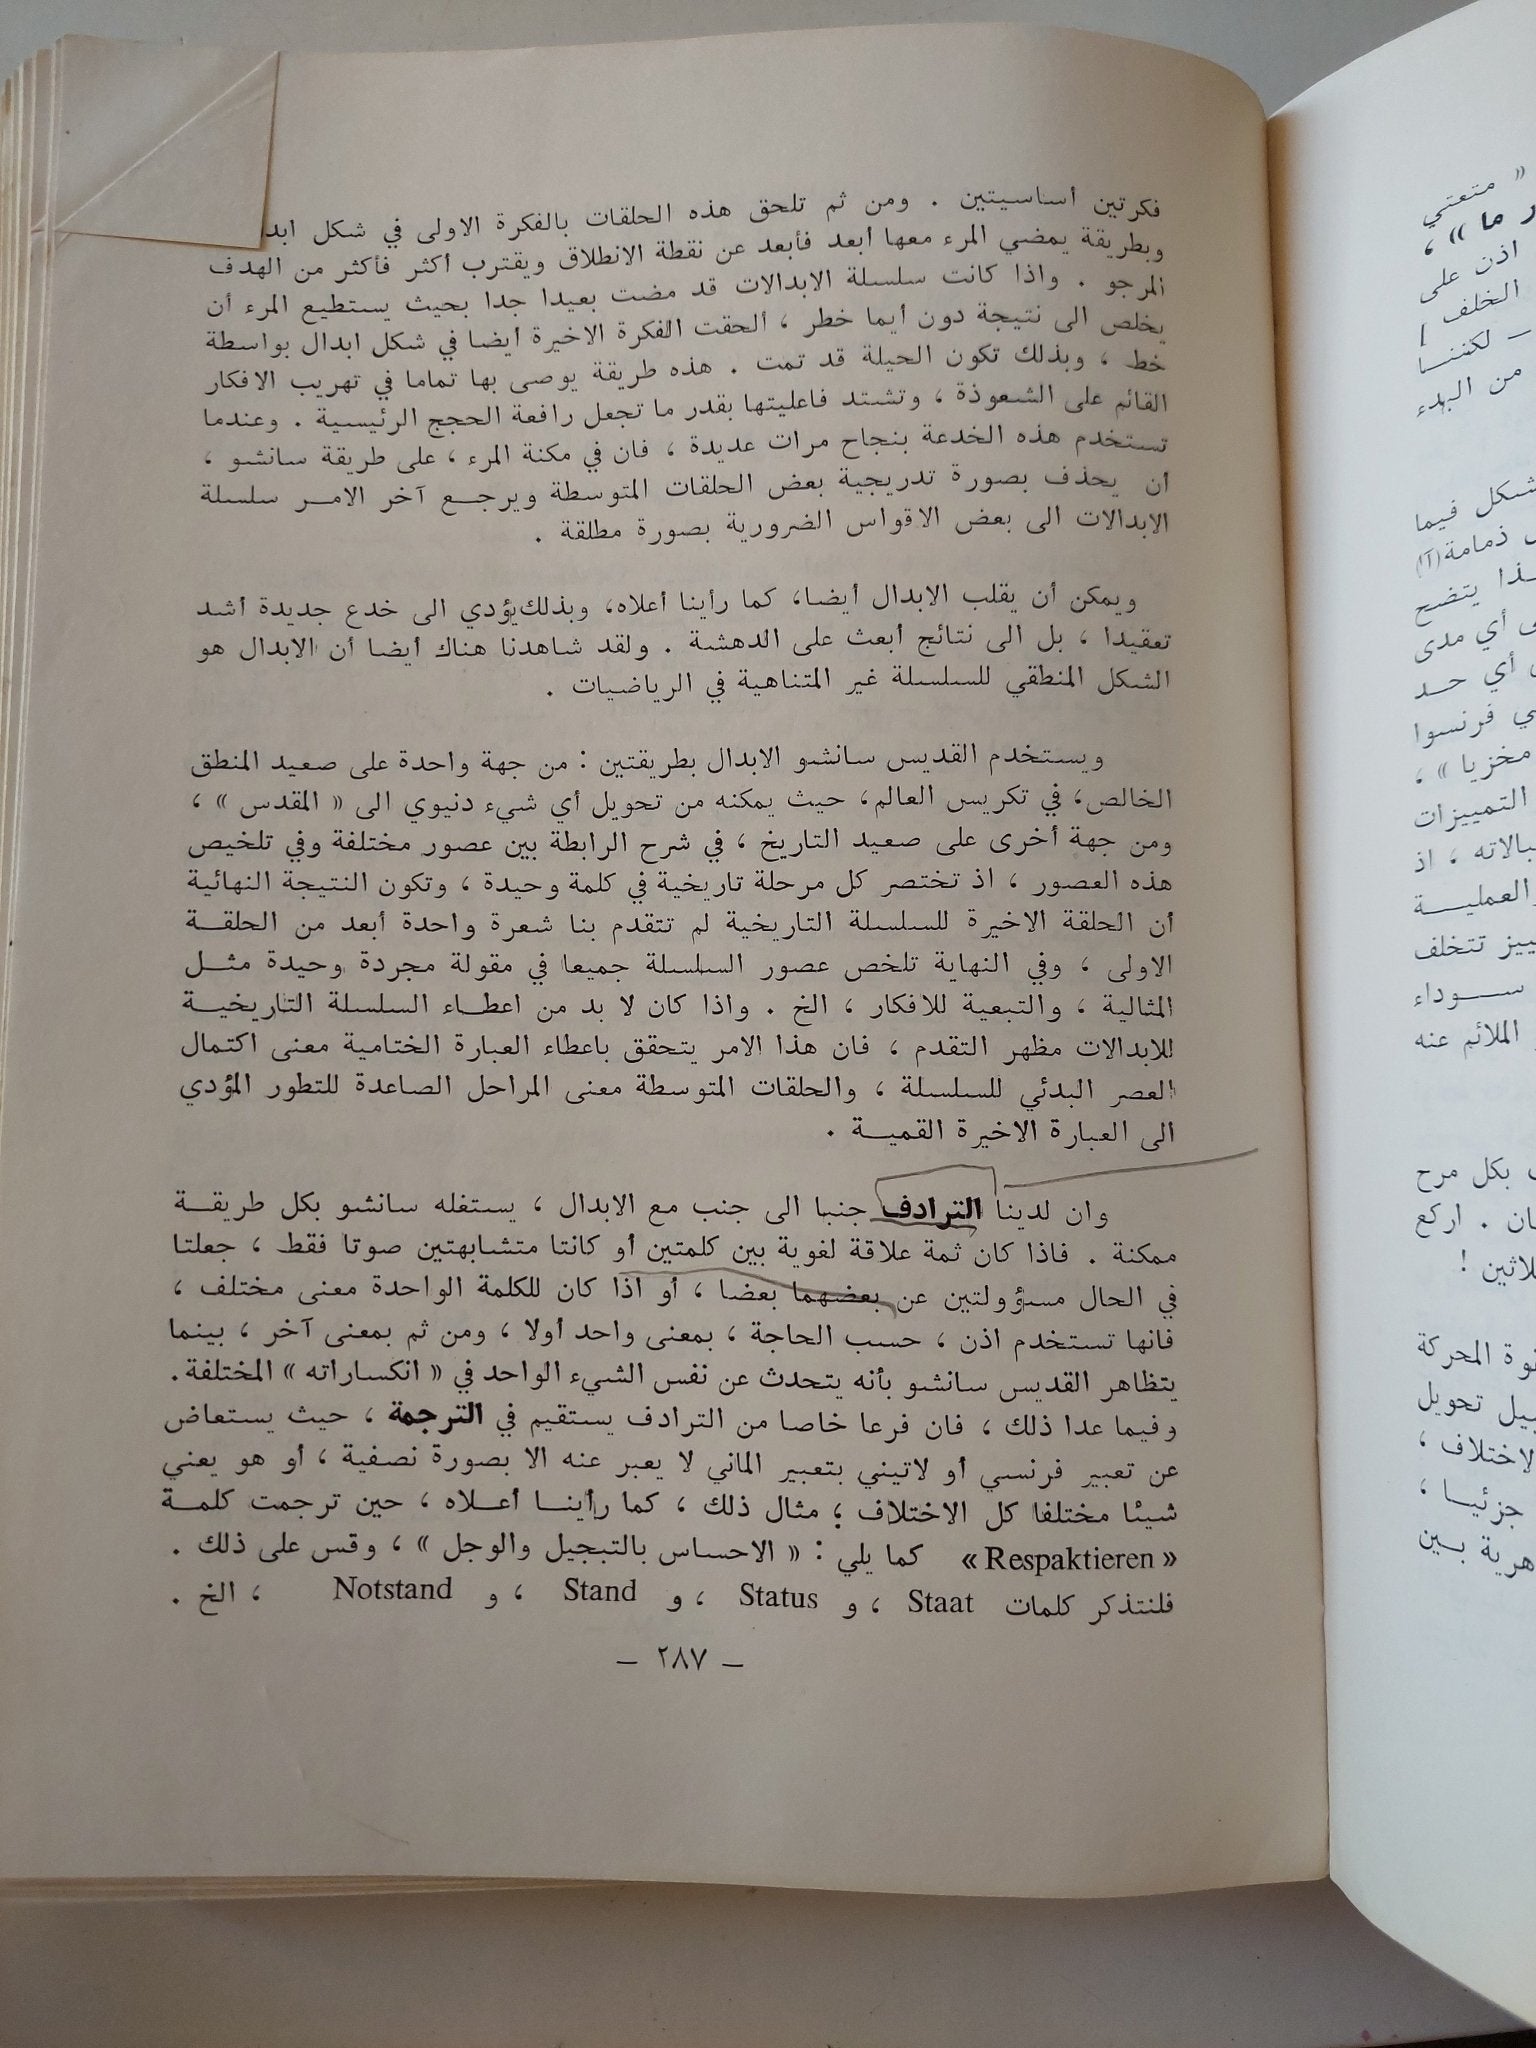 فكرتين أساسيتين . ومن ثم تلحق هذه الحلقات بالفكرة الاولى في شكل ابد
وبطريقة يمضي المرء معها أبعد فأبعد عن نقطة الانطلاق ويقترب أكثر فأكثر من الهدف
المرجو . واذا كانت سلسلة الابدالات قد مضت بعيدا جدا بحيث يستطيع المرء أن
يخلص الى نتيجة دون أيما خطر ، ألحقت الفكرة الاخيرة أيضا في شكل ابدال بواسطة
خط ، وبذلك تكون الحيلة قد تمت . هذه طريقة يوصى بها تماما في تهريب الافكار
القائم على الشعوذة ، وتشتد فاعليتها بقدر ما تجعل رافعة الحجج الرئيسية . وعندما
تستخدم هذه الخدعة بنجاح مرات عديدة ، فان في مكنة المرء ، على طريقة سانشو ،
أن يحذف بصورة تدريجية بعض الحلقات المتوسطة ويرجع آخر الامر سلسلة
الابدالات الى بعض الاقواس الضرورية بصورة مطلقة .
ويمكن أن يقلب الابدال أيضا، كما رأينا أعلاه، وبذلك يؤدي الى خدع جديدة أشد
تعقيدا ، بل الى نتائج أبعث على الدهشة . ولقد شاهدنا هناك أيضا أن الابدال هو
الشكل المنطقي للسلسلة غير المتناهية في الرياضيات .
ويستخدم القديس سانشو الابدال بطريقتين : من جهة واحدة على صعيد المنطق
الخالص، في تكريس العالم، حيث يمكنه من تحويل أي شيء دنيوي الى « المقدس » ،
ومن جهة أخرى على صعيد التاريخ ، في شرح الرابطة بين عصور مختلفة وفي تلخيص
هذه العصور ، اذ تختصر كل مرحلة تاريخية في كلمة وحيدة ، وتكون النتيجة النهائية
أن الحلقة الاخيرة للسلسلة التاريخية لم تتقدم بنا شعرة واحدة أبعد من الحلقة
الاولى ، وفي النهاية تلخص عصور السلسلة جميعا في مقولة مجردة وحيدة مثل
المثالية ، والتبعية للافكار ، الخ . واذا كان لا بد من اعطاء السلسلة التاريخية
للابدالات مظهر التقدم ، فان هذا الامر يتحقق باعطاء العبارة الختامية معنى اكتمال
العصر البدئي للسلسلة ، والحلقات المتوسطة معنى المراحل الصاعدة للتطور المؤدي
الى العبارة الاخيرة القمية .
وان لدينا الترادف جنبا الى جنب مع الابدال ، يستغله سانشو بكل طريقة
ممكنة . فاذا كان ثمة علاقة لغوية بين كلمتين أو كانتا متشابهتين صوتا فقط ، جعلتا
في الحال مسؤولتين عن بعضهما بعضا ، أو اذا كان للكلمة الواحدة معنى مختلف ،
فانها تستخدم اذن ، حسب الحاجة ، بمعنى واحد أولا ، ومن ثم بمعنى آخر ، بينما
يتظاهر القديس سانشو بأنه يتحدث عن نفس الشيء الواحد في « انكساراته » المختلفة.
وفيما عدا ذلك ، فان فرعا خاصا من الترادف يستقيم في الترجمة ، حيث يستعاض
عن تعبير فرنسي أو لاتيني بتعبير الماني لا يعبر عنه الا بصورة نصفية ، أو هو يعني
شيئا مختلفا كل الاختلاف ؛ مثال ذلك ، كما رأينا أعلاه ، حين ترجمت كلمة
« Respaktieren » كما يلي : « الاحساس بالتبجيل والوجل » ، وقس على ذلك .
فلنتذكر كلمات Staat ، و Status ، و Stand ، و Notstand ، الخ .
— ٢٨٧ —
« متعتي
ر ما » ،
اذن على
الخلف !
– لكننا
من البدء
شكل فيما
ذمامة(١٢)
يتضح
أي مدى
أي حد
فرنسوا
مخزيا » ،
التمييزات
، اذ
العملية
تتخلف
سوداء
الملائم عنه
بكل مرح
. اركع
المحركة
تحويل
الاختلاف ،
جزئيا ،
بين